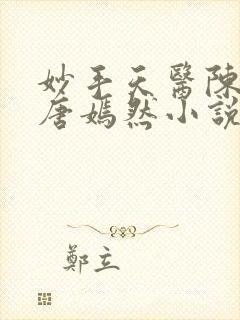 妙手天醫陳
唐嫣然小說
鄭立